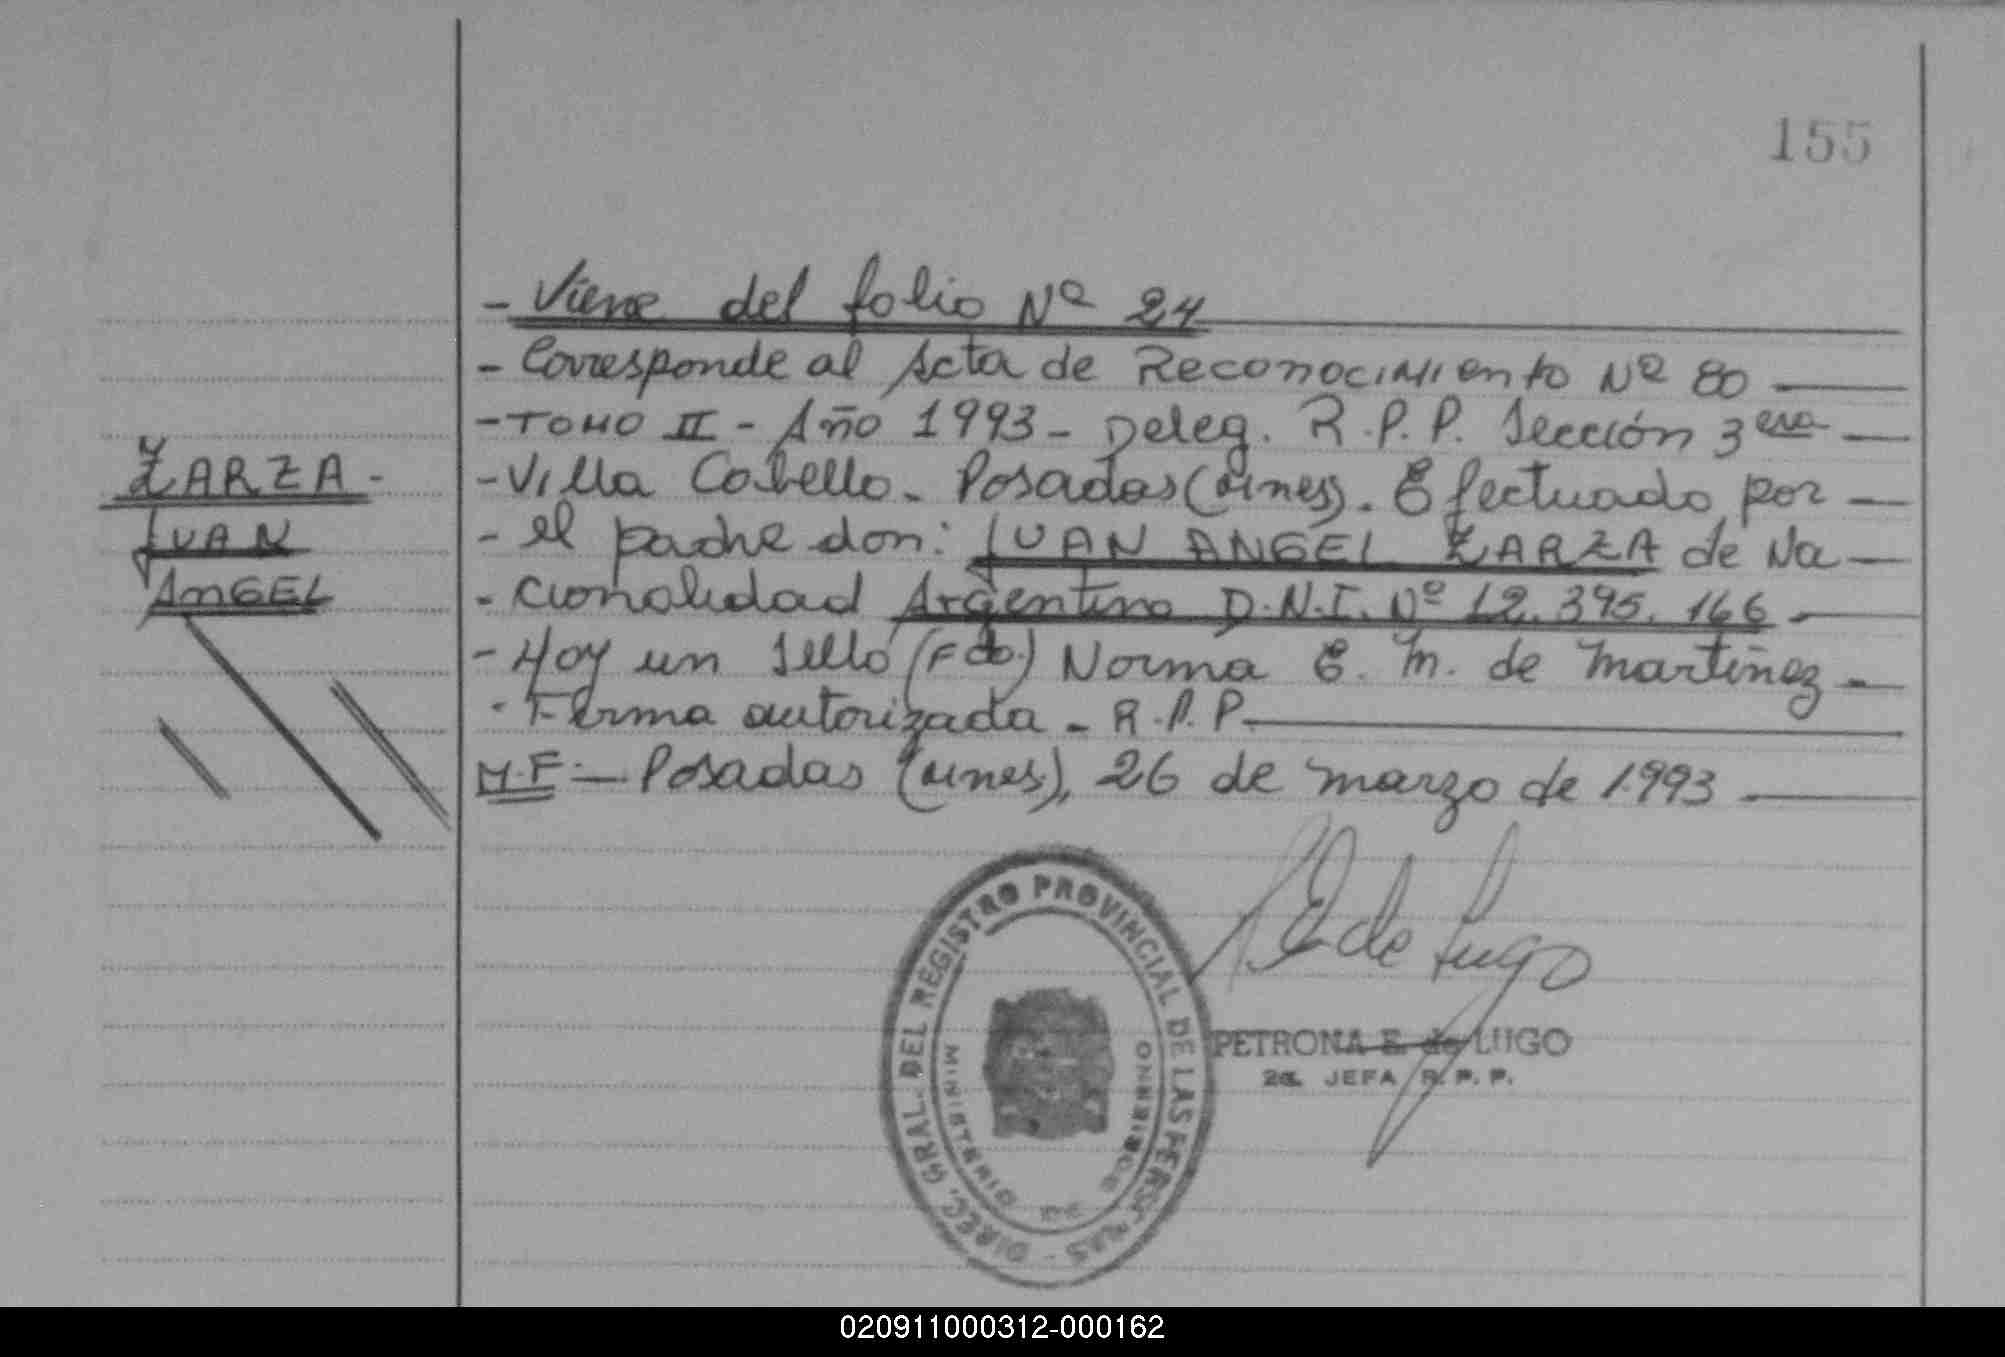 155
- Viene del folio Nº 24
- Corresponde al Acta de Reconocimiento Nº 80
- TOMO II - Año 1993 - Deleg. R.P.P. Sección 3era
ZARZA -
- Villa Cabello - Posadas (Mnes). Efectuado por
JUAN
- el padre don: JUAN ANGEL ZARZA de Na
ANGEL
- cionalidad Argentino D.N.I. Nº 12.395.166 -
- Hay un sello (Fdo.) Norma E. M. de Martinez -
- Firma autorizada - R.P.P.
M.F. - Posadas (Mnes), 26 de marzo de 1993
DIREC. GRAL. DEL REGISTRO PROVINCIAL DE LAS PERSONAS -
MINISTERIO DE GOBIERNO
P E de Lugo
PETRONA E. de LUGO
2a. JEFA R.P.P.
020911000312-000162